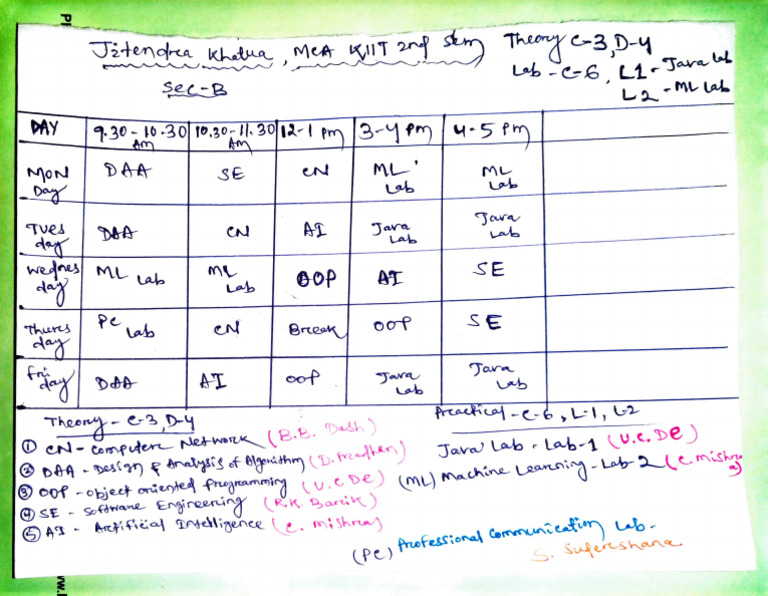 Jitendra Khatua, MCA KIIT 2nd sem
Sec-B
Theory C-3, D-4
Lab - C-6, L1 - Java Lab
L2 - ML Lab
DAY 9.30 - 10.30 AM 10.30 - 11.30 AM 12-1 pm 3-4 pm 4-5 pm
Mon Day DAA SE CN ML Lab ML Lab
Tues day DAA CN AI Java Lab Java Lab
Wednes day ML Lab ML Lab OOP AI SE
Thurs day PC Lab CN Break OOP SE
Fri day DAA AI OOP Java Lab Java Lab
Theory - C-3, D-4
① CN - Computer Network (B.B. Dash)
② DAA - Design & Analysis of Algorithm (D. Pradhan)
③ OOP - object oriented Programming (U.C. DE)
④ SE - Software Engineering (R.K. Barik)
⑤ AI - Artificial Intelligence (C. Mishra)
Practical - C-6, L-1, L-2
Java Lab - Lab-1 (U.C. De)
(ML) Machine Learning - Lab-2 (C. Mishra)
(PC) Professional Communication Lab -
S.